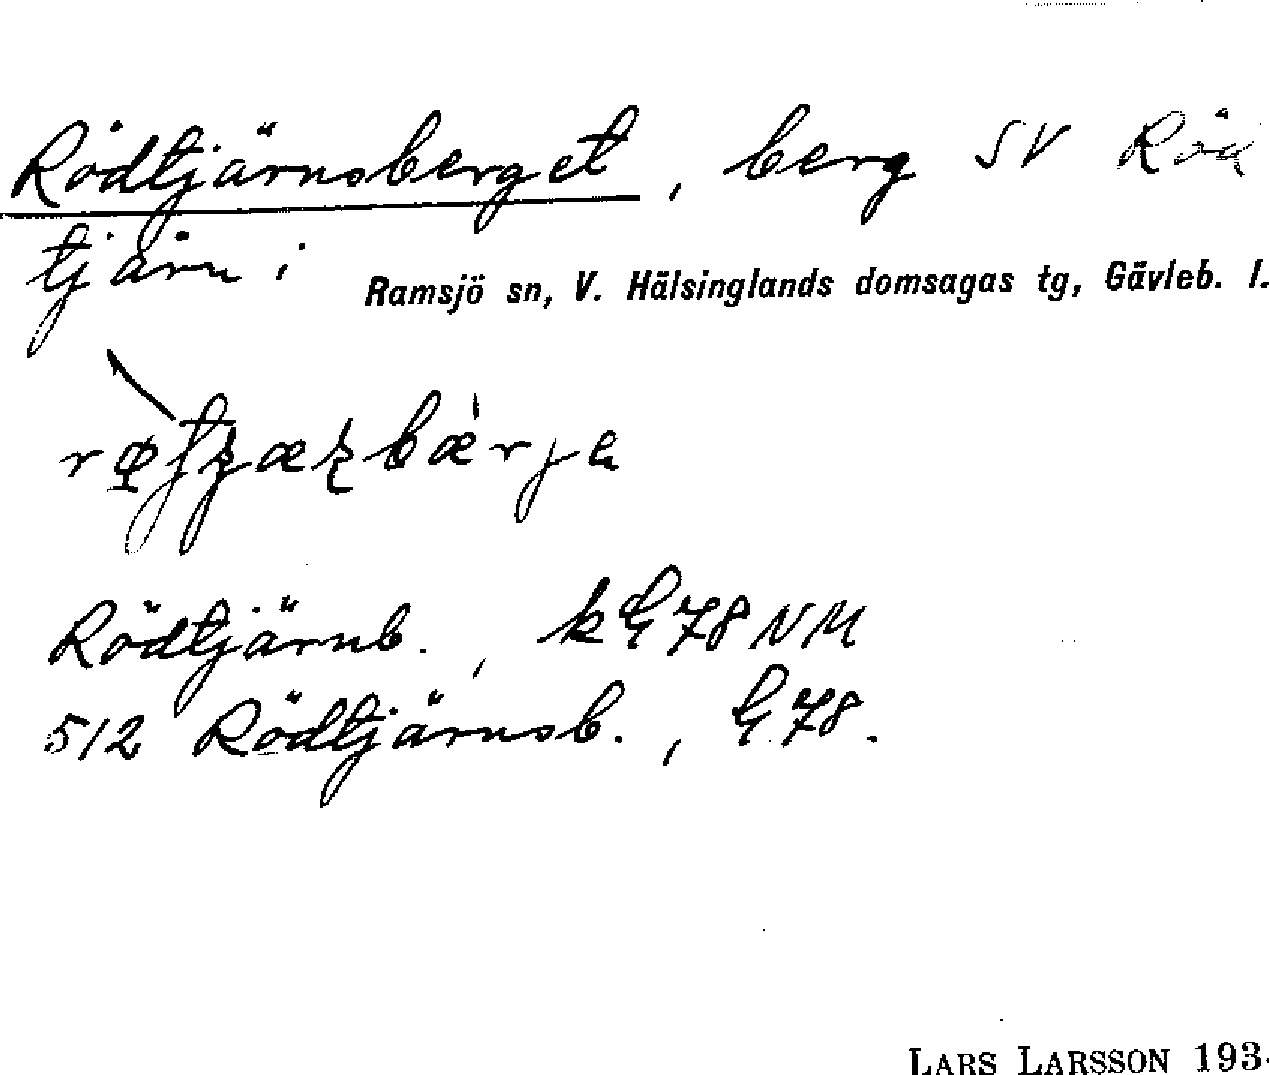 Rödtjärnsberget, berg SV Röd
tjärn i
Ramsjö sn, V. Hälsinglands domsagas tg, Gävleb. l.
Rödtjärnb., kG78NM
512 Rödtjärnsb., G78.
LARS LARSSON 193